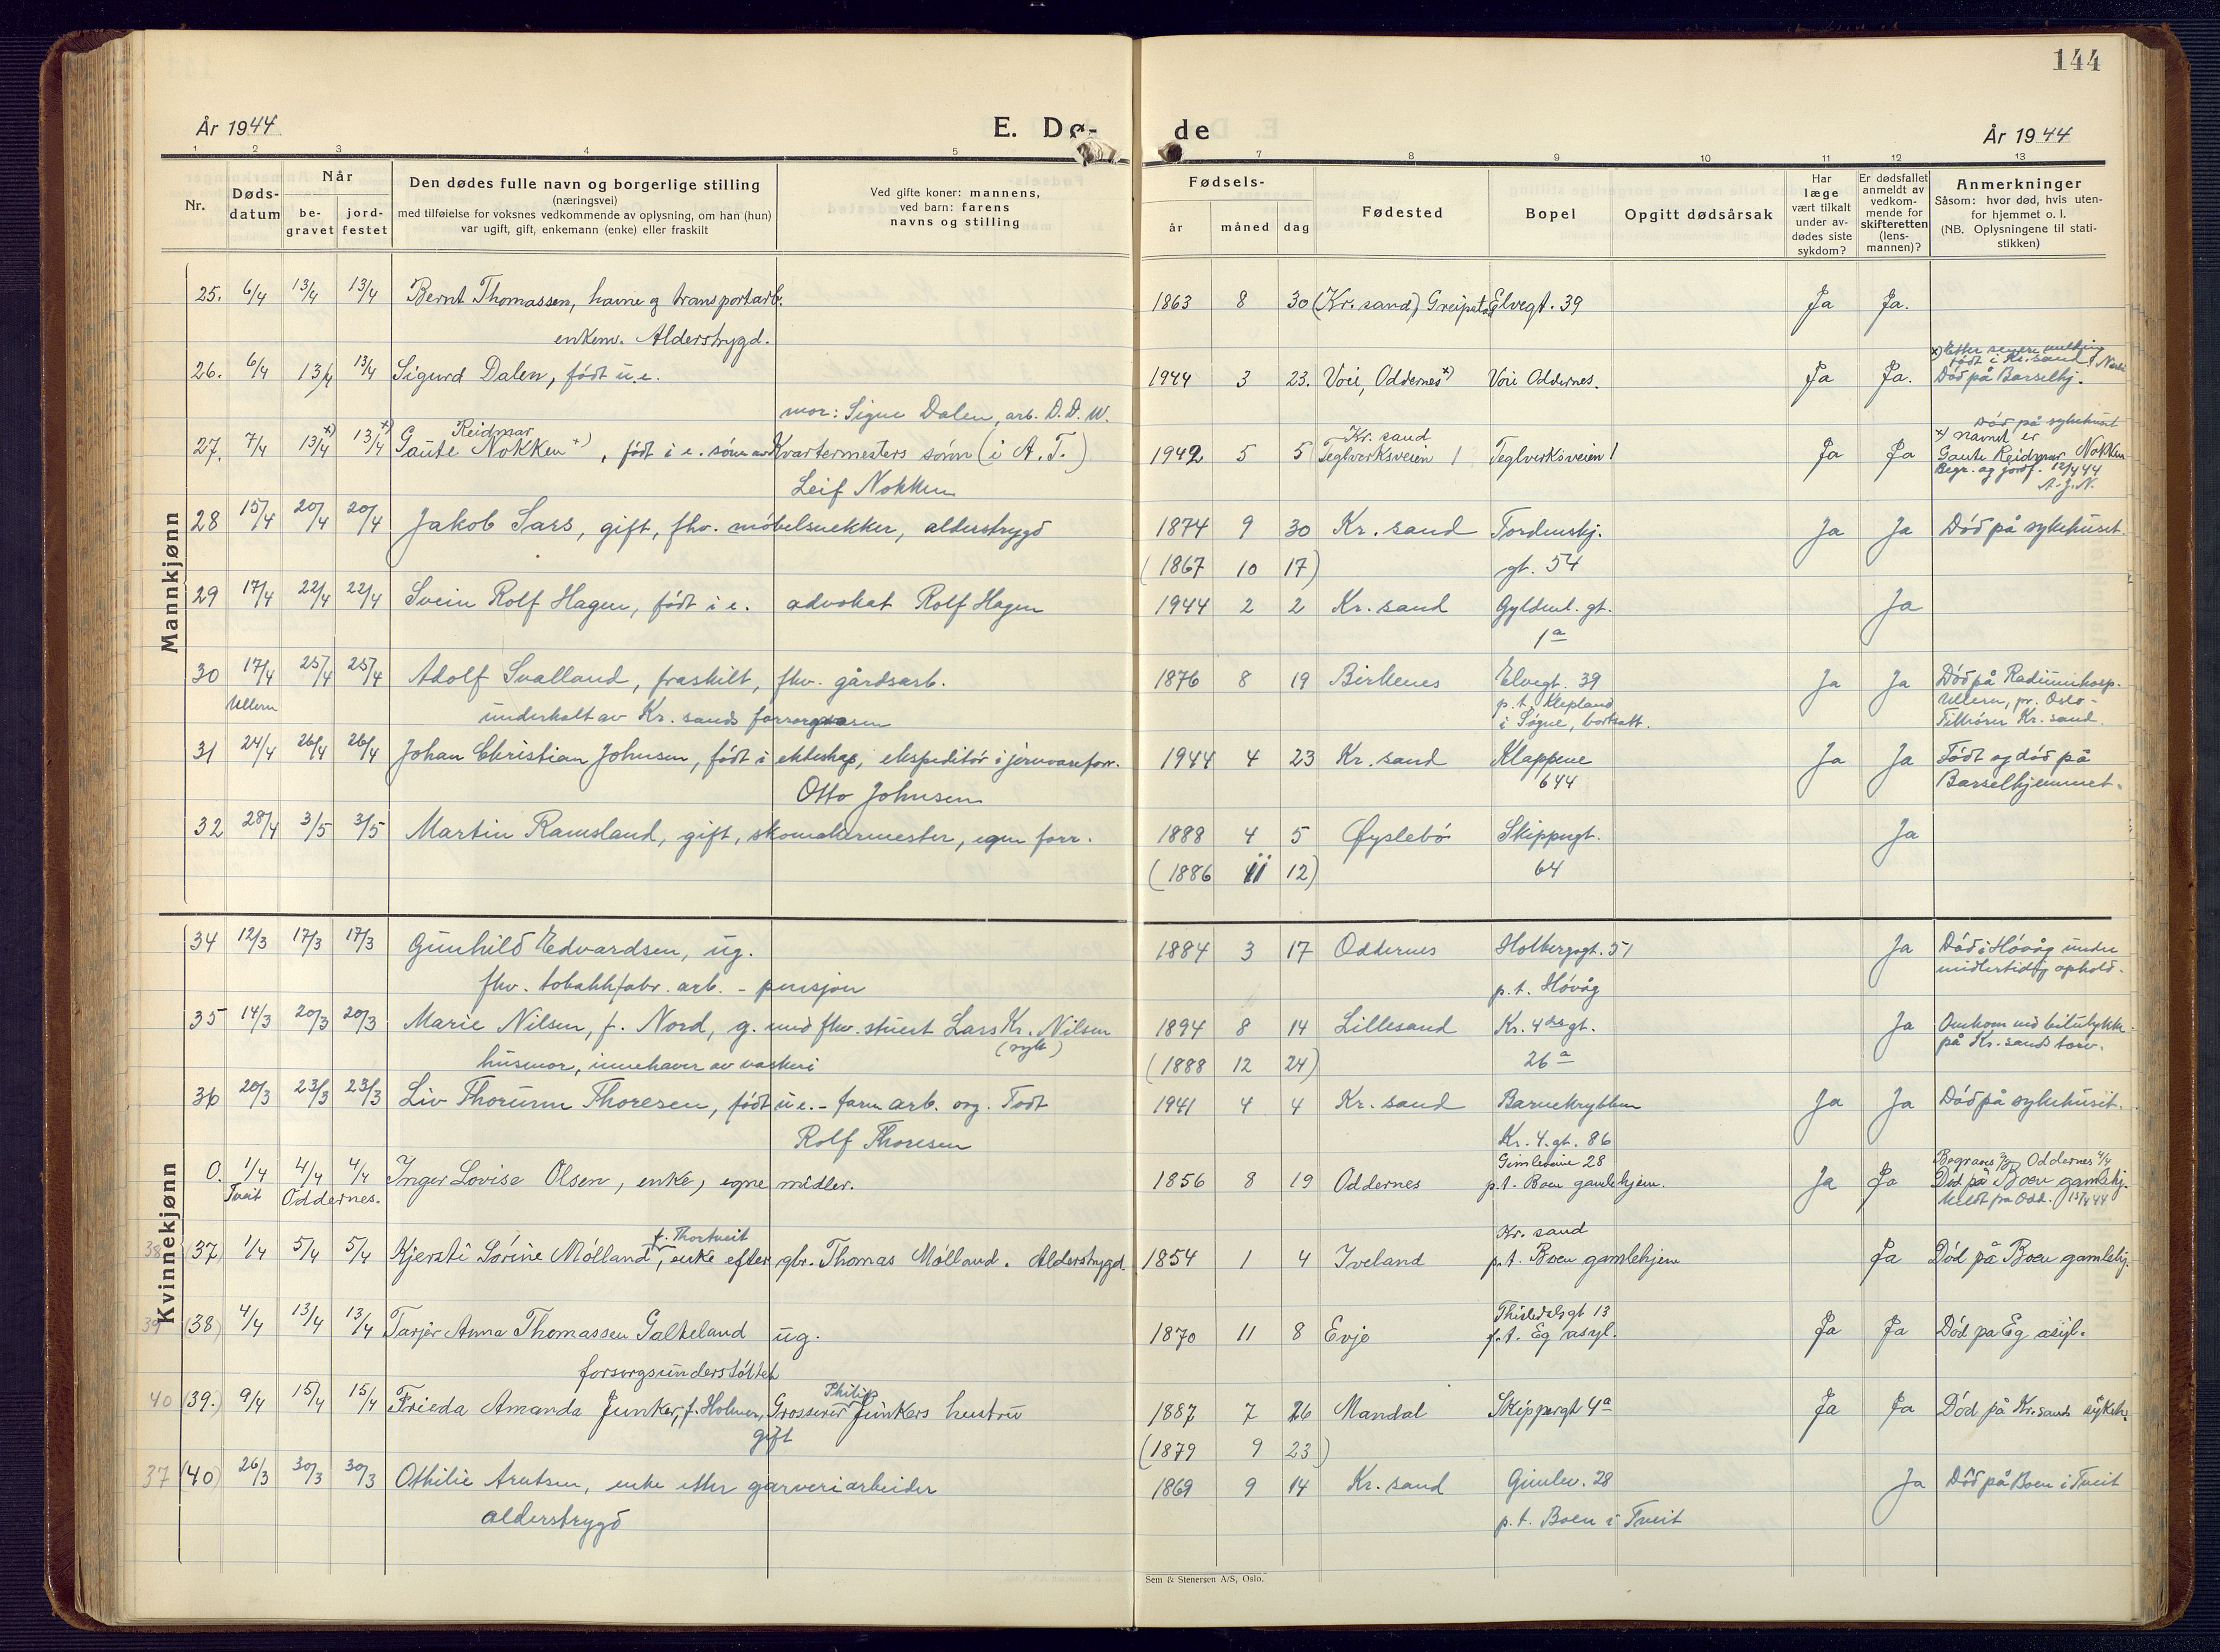 144
År 1944
E. Dø-
de
År 1944
1 2 3 4 5
7 8 9 10 11 12 13
Nr.
Døds-
datum
Når
be-
gravet
jord-
festet
Den dødes fulle navn og borgerlige stilling
(næringsvei)
med tilføielse for voksnes vedkommende av oplysning, om han (hun)
var ugift, gift, enkemann (enke) eller fraskilt
Ved gifte koner: mannens,
ved barn: farens
navns og stilling
Fødsels-
år måned dag
Fødested
Bopel
Opgitt dødsårsak
Har
læge
vært tilkalt
under av-
dødes siste
sykdom?
Er dødsfallet
anmeldt av
vedkom-
mende for
skifteretten
(lens-
mannen)?
Anmerkninger
Såsom: hvor død, hvis uten-
for hjemmet o. l.
(NB. Oplysningene til stati-
stikken)
Mannkjønn
25. 6/4 13/4 13/4 Bernt Thomassen, havne og transportarb. 1863 8 30 (Kr. sand) Elvegt. 39 Ja Ja.
enkem. Alderstrygd.
26. 6/4 13/4 13/4 Sigurd Dalen, født u.e. 1944 3 23. Voie, Oddernes x) Voie Oddernes. Ja Ja.
x) Efter senere melding
født i Kr.sand
Død på Barselhj.
mor: Signe Dalen, arb. D.D.W.
27. 7/4 13/4 x) 13/4 x) Gaute Reidmar Nokken x), født i e. sønn av Kvartermesters sønn (i A.T.) 1942 5 5 Kr. sand Teglverksveien 1 Teglverksveien 1 Ja Ja
Leif Nokken
Død på sykehuset
x) navnet er
Gaute Reidmar Nokken
Begr. og jordf. 12/4 44
A.J.N.
28 15/4 20/4 20/4 Jakob Sars, gift, fhv. møbelsnekker, alderstrygd 1874 9 30 Kr. sand Tordenskj. Ja Ja Død på sykehuset
(1867 10 17) gt. 54
29 17/4 22/4 22/4 Svein Rolf Hagen, født i e. advokat Rolf Hagen 1944 2 2 Kr. sand Gyldenl. gt. Ja
1a
30 17/4 25/4 25/4 Adolf Svalland, fraskilt, fhv. gårdsarb. 1876 8 19 Birkenes Elvegt. 39 Ja Ja Død på Radiumhosp.
Ullern underholt av Kr. sands forsorgsvesen p.t. Klepland Ullern, pr. Oslo -
i Søgne, bortsatt. Tilhører Kr. sand.
31 24/4 26/4 26/4 Johan Christian Johnsen, født i ekteskap, ekspeditør i jernvareforr. 1944 4 23 Kr. sand Klappene Ja Ja Født og død på
Otto Johnsen 644 Barselhjemmet.
32 28/4 3/5 3/5 Martin Ramsland, gift, skomakermester, egen forr. 1888 4 5 Øyslebø Skippergt. Ja
(1886 11 12) 64
Kvinnekjønn
34 12/3 17/3 17/3 Gunhild Edvardsen, ug. 1884 3 17 Oddernes Holbergsgt. 51 Ja Død i Høvåg under
fhv. tobakkfabr. arb. - pensjon p.t. Høvåg midlertidig ophold.
35 14/3 20/3 20/3 Marie Nilsen, f. Nord, g. med fhv. stuert Lars Kr. Nilsen 1894 8 14 Lillesand Kr. 4des gt. Ja Omkom ved bilulykke
husmor, innehaver av vaskeri (1888 12 24) 26a på Kr. sands torv.
36 20/3 23/3 23/3 Liv Thorunn Thoresen, født u.e. - farm arb. org. Todt 1941 4 4 Kr. sand Barnekrybben Ja Ja Død på sykehuset.
Rolf Thoresen Kr. 4. gt. 86
0. 1/4 4/4 4/4 Inger Lovise Olsen, enke, egne midler. 1856 8 19 Oddernes Gimleveie 28 p.t. Boen gamlehjem. Ja Ja
Tveit Oddernes.
Begraves på Oddernes 4/4
Død på Boen gamlehj.
Meldt fra Odd. 15/4 44
38 (37) 1/4 5/4 5/4 Kjersti Sørine Mølland f. Thortveit, enke efter gbr. Thomas Mølland. Alderstrygd. 1854 1 4 Iveland Kr. sand p.t. Boen gamlehjem Ja Død på Boen gamlehj.
39 (38) 4/4 13/4 13/4 Tarjer Anna Thomassen Galteland ug. 1870 11 8 Evje Thisledalsgt 13 p.t. Eg asyl. Ja Ja Død på Eg asyl.
forsorgsunderstøttet
40 (39.) 9/4 15/4 15/4 Frieda Amanda Junker, f. Holmen, Grosserer Philip Junkers hustru 1887 7 26 Mandal Skippergt 4a Ja Ja Død på Kr. sands sykeh.
gift (1879 9 23)
37 (40) 26/3 30/3 30/3 Othilie Arntsen, enke etter garveriarbeider 1869 9 14 Kr. sand Gimlev. 28 Ja Død på Boen i Tveit
alderstrygd p.t. Boen i Tveit
Sem & Stenersen A/S, Oslo.